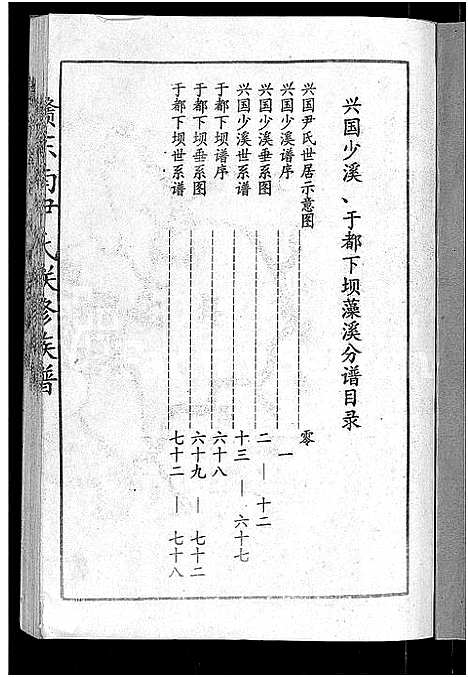 兴国少溪、于都下坝藻溪分谱目录
兴国尹氏世居示意图 零
兴国少溪谱序 一
兴国少溪垂系图 二—十二
兴国少溪世系谱 十三—六十七
于都下坝谱序 六十八
于都下坝垂系图 六十九—七十二
于都下坝世系谱 七十二—七十八
尹氏联修族谱